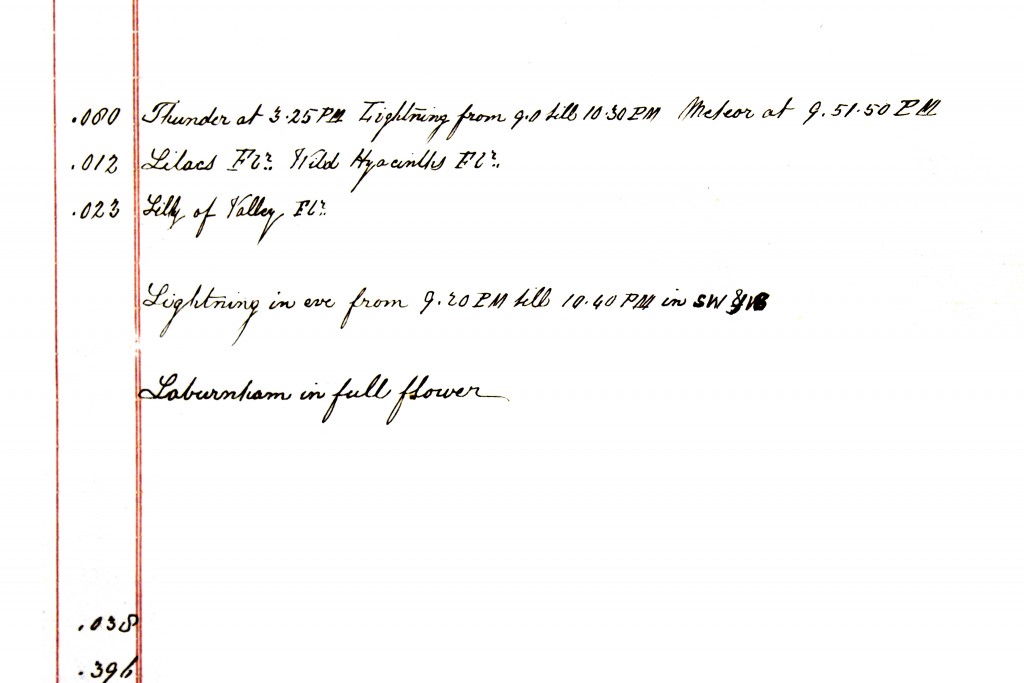 .080 Thunder at 3.25 PM Lightning from 9.0 till 10.30 PM Meteor at 9.51.50 PM
.012 Lilacs Flr. Wild Hyacinths Flr.
.023 Lilly of Valley Flr.
Lightning in eve from 9.20 PM till 10.40 PM in SW &
Laburnham in full flower
.038
.396